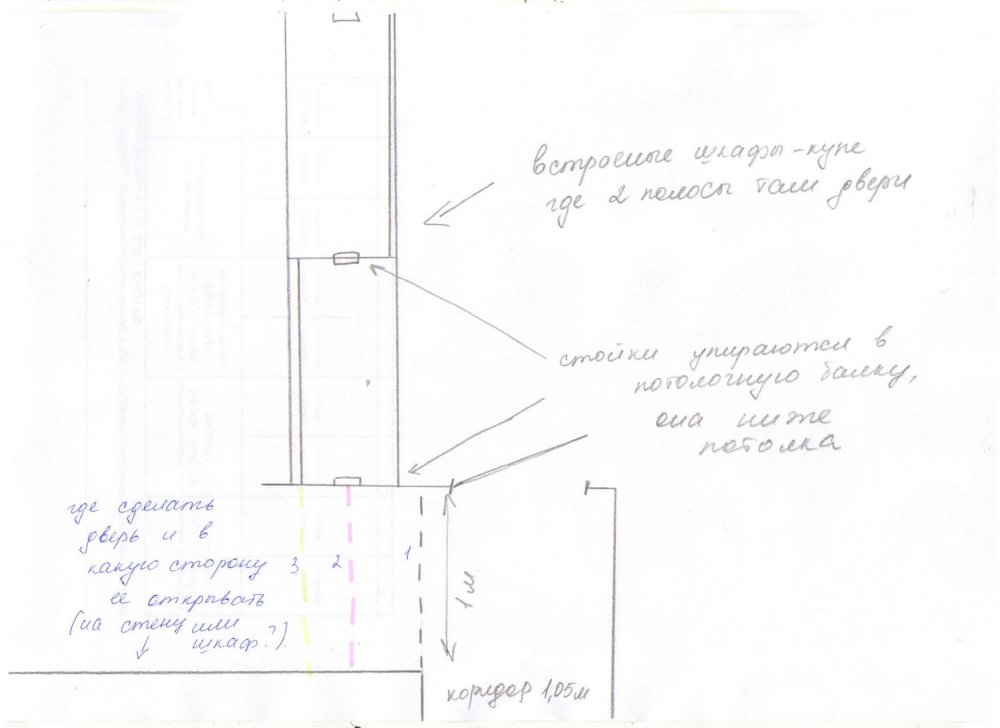 встроеные шкафы-купе
где 2 полосы там двери
стойки упираются в
потолочную балку,
она ниже
потолка
где сделать
дверь и в
какую сторону
ее открывать
(на стену или
шкаф?).
3
2
1
1 м.
коридор 1,05м